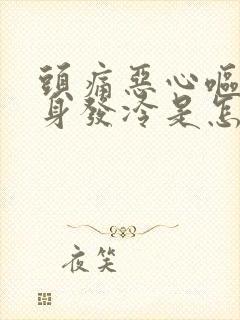 頭痛惡心嘔
身發冷是怎
夜笑